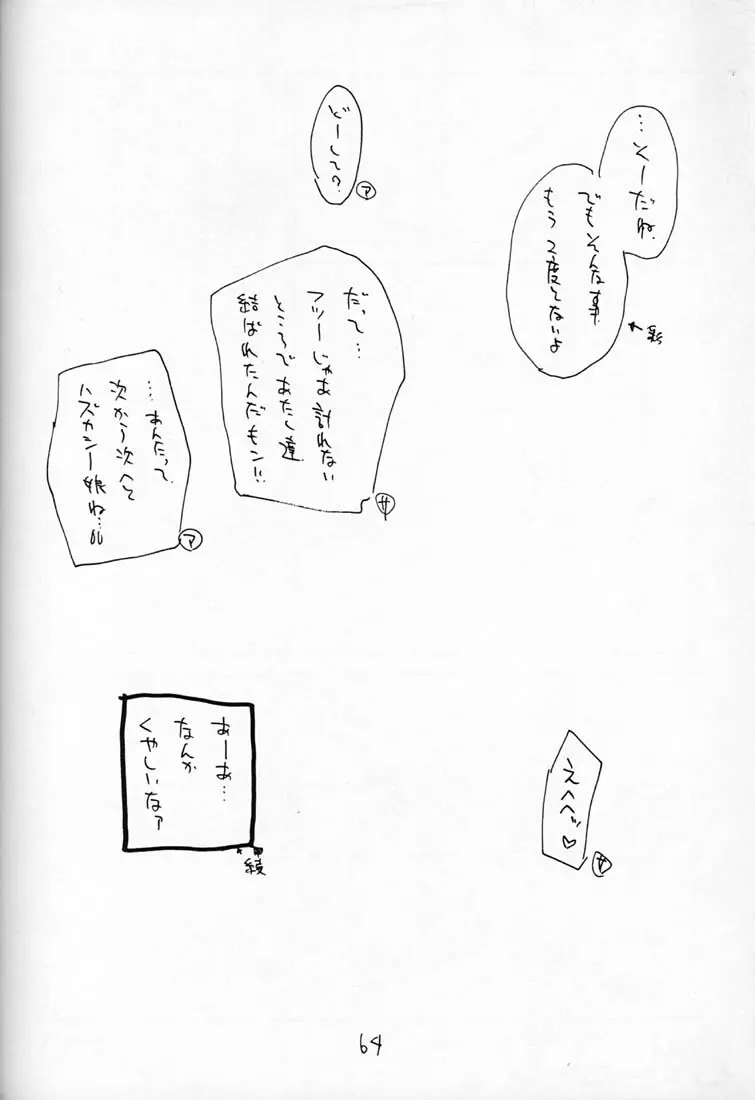 …そーだね
でもそんな事
もう2度とないよ
←彩
どーして?
ア
だって…
フツーじゃあ計れない
ところであたし達
結ばれたんだモン!!
サ
…あんたって
次から次へと
ハズカシー娘ね…
ア
えへへッ♡
サ
あーあ…
なんか
くやしいなァ
64